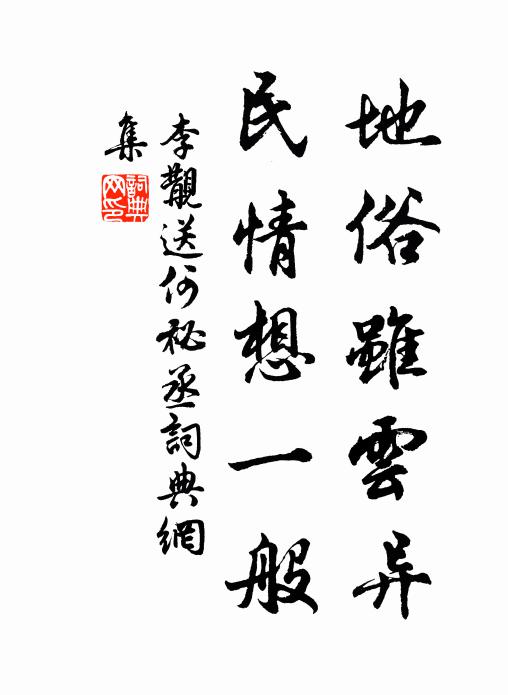 地俗雖雲异
民情想一般
李覯送何祕丞詞典網
集
詞典
网印